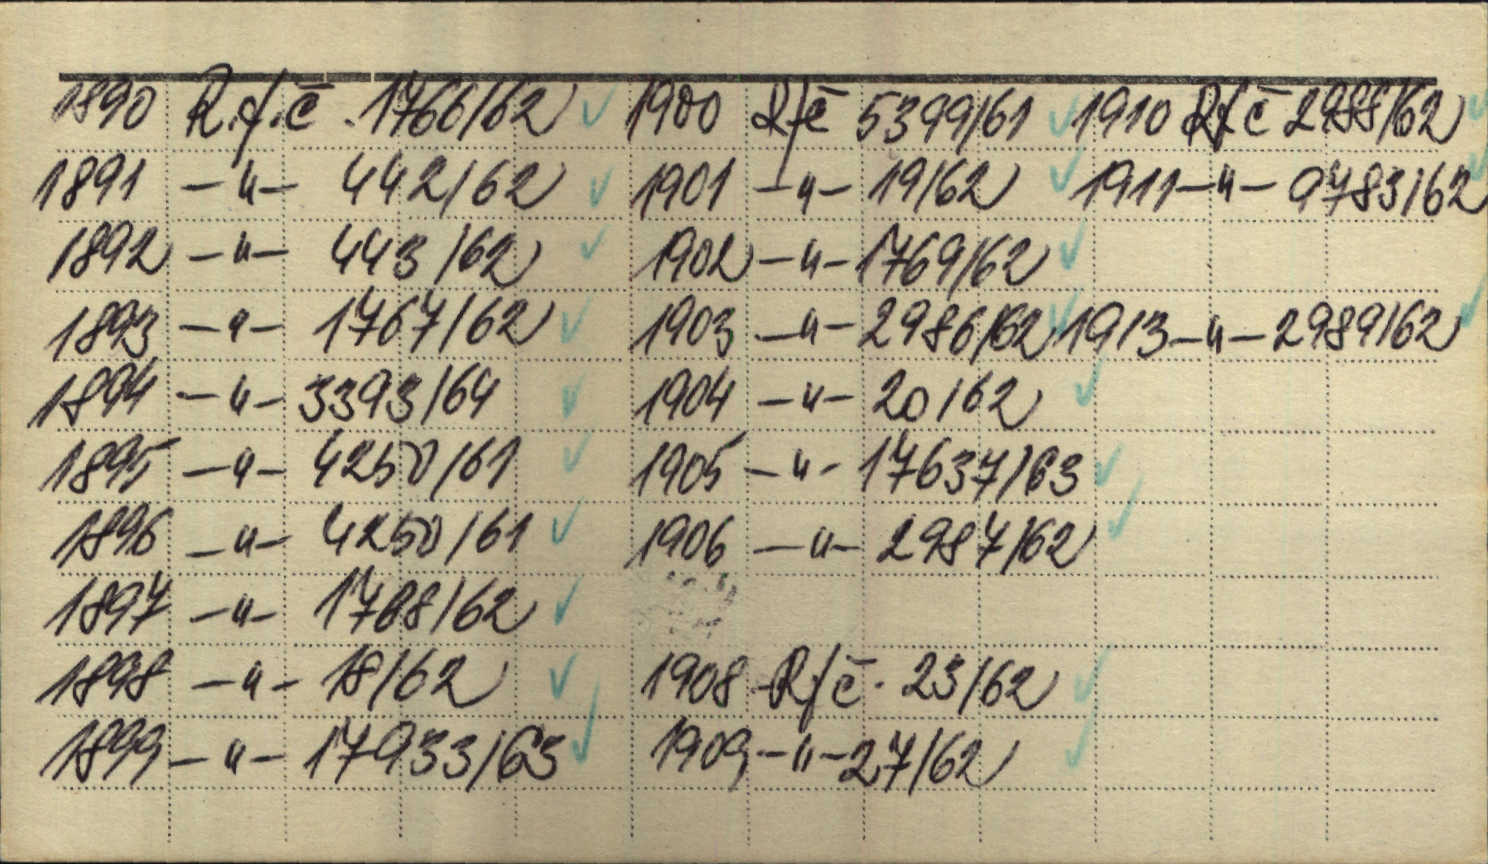 1890 R.f.č. 1766/62 ✓ 1900 Rfč 5399/61 ✓ 1910 Rfč 2988/62 ✓
1891 —"— 442/62 ✓ 1901 —"— 19/62 ✓ 1911 —"— 9783/62 ✓
1892 —"— 443/62 ✓ 1902 —"— 1769/62 ✓
1893 —"— 1767/62 ✓ 1903 —"— 2986/62 ✓ 1913 —"— 2989/62 ✓
1894 —"— 3393/64 ✓ 1904 —"— 20/62 ✓
1895 —"— 4250/61 ✓ 1905 —"— 17637/63 ✓
1896 —"— 4250/61 ✓ 1906 —"— 2987/62 ✓
1897 —"— 1768/62 ✓
1898 —"— 18/62 ✓ 1908 Rfč. 23/62 ✓
1899 —"— 17933/63 ✓ 1909 —"— 27/62 ✓